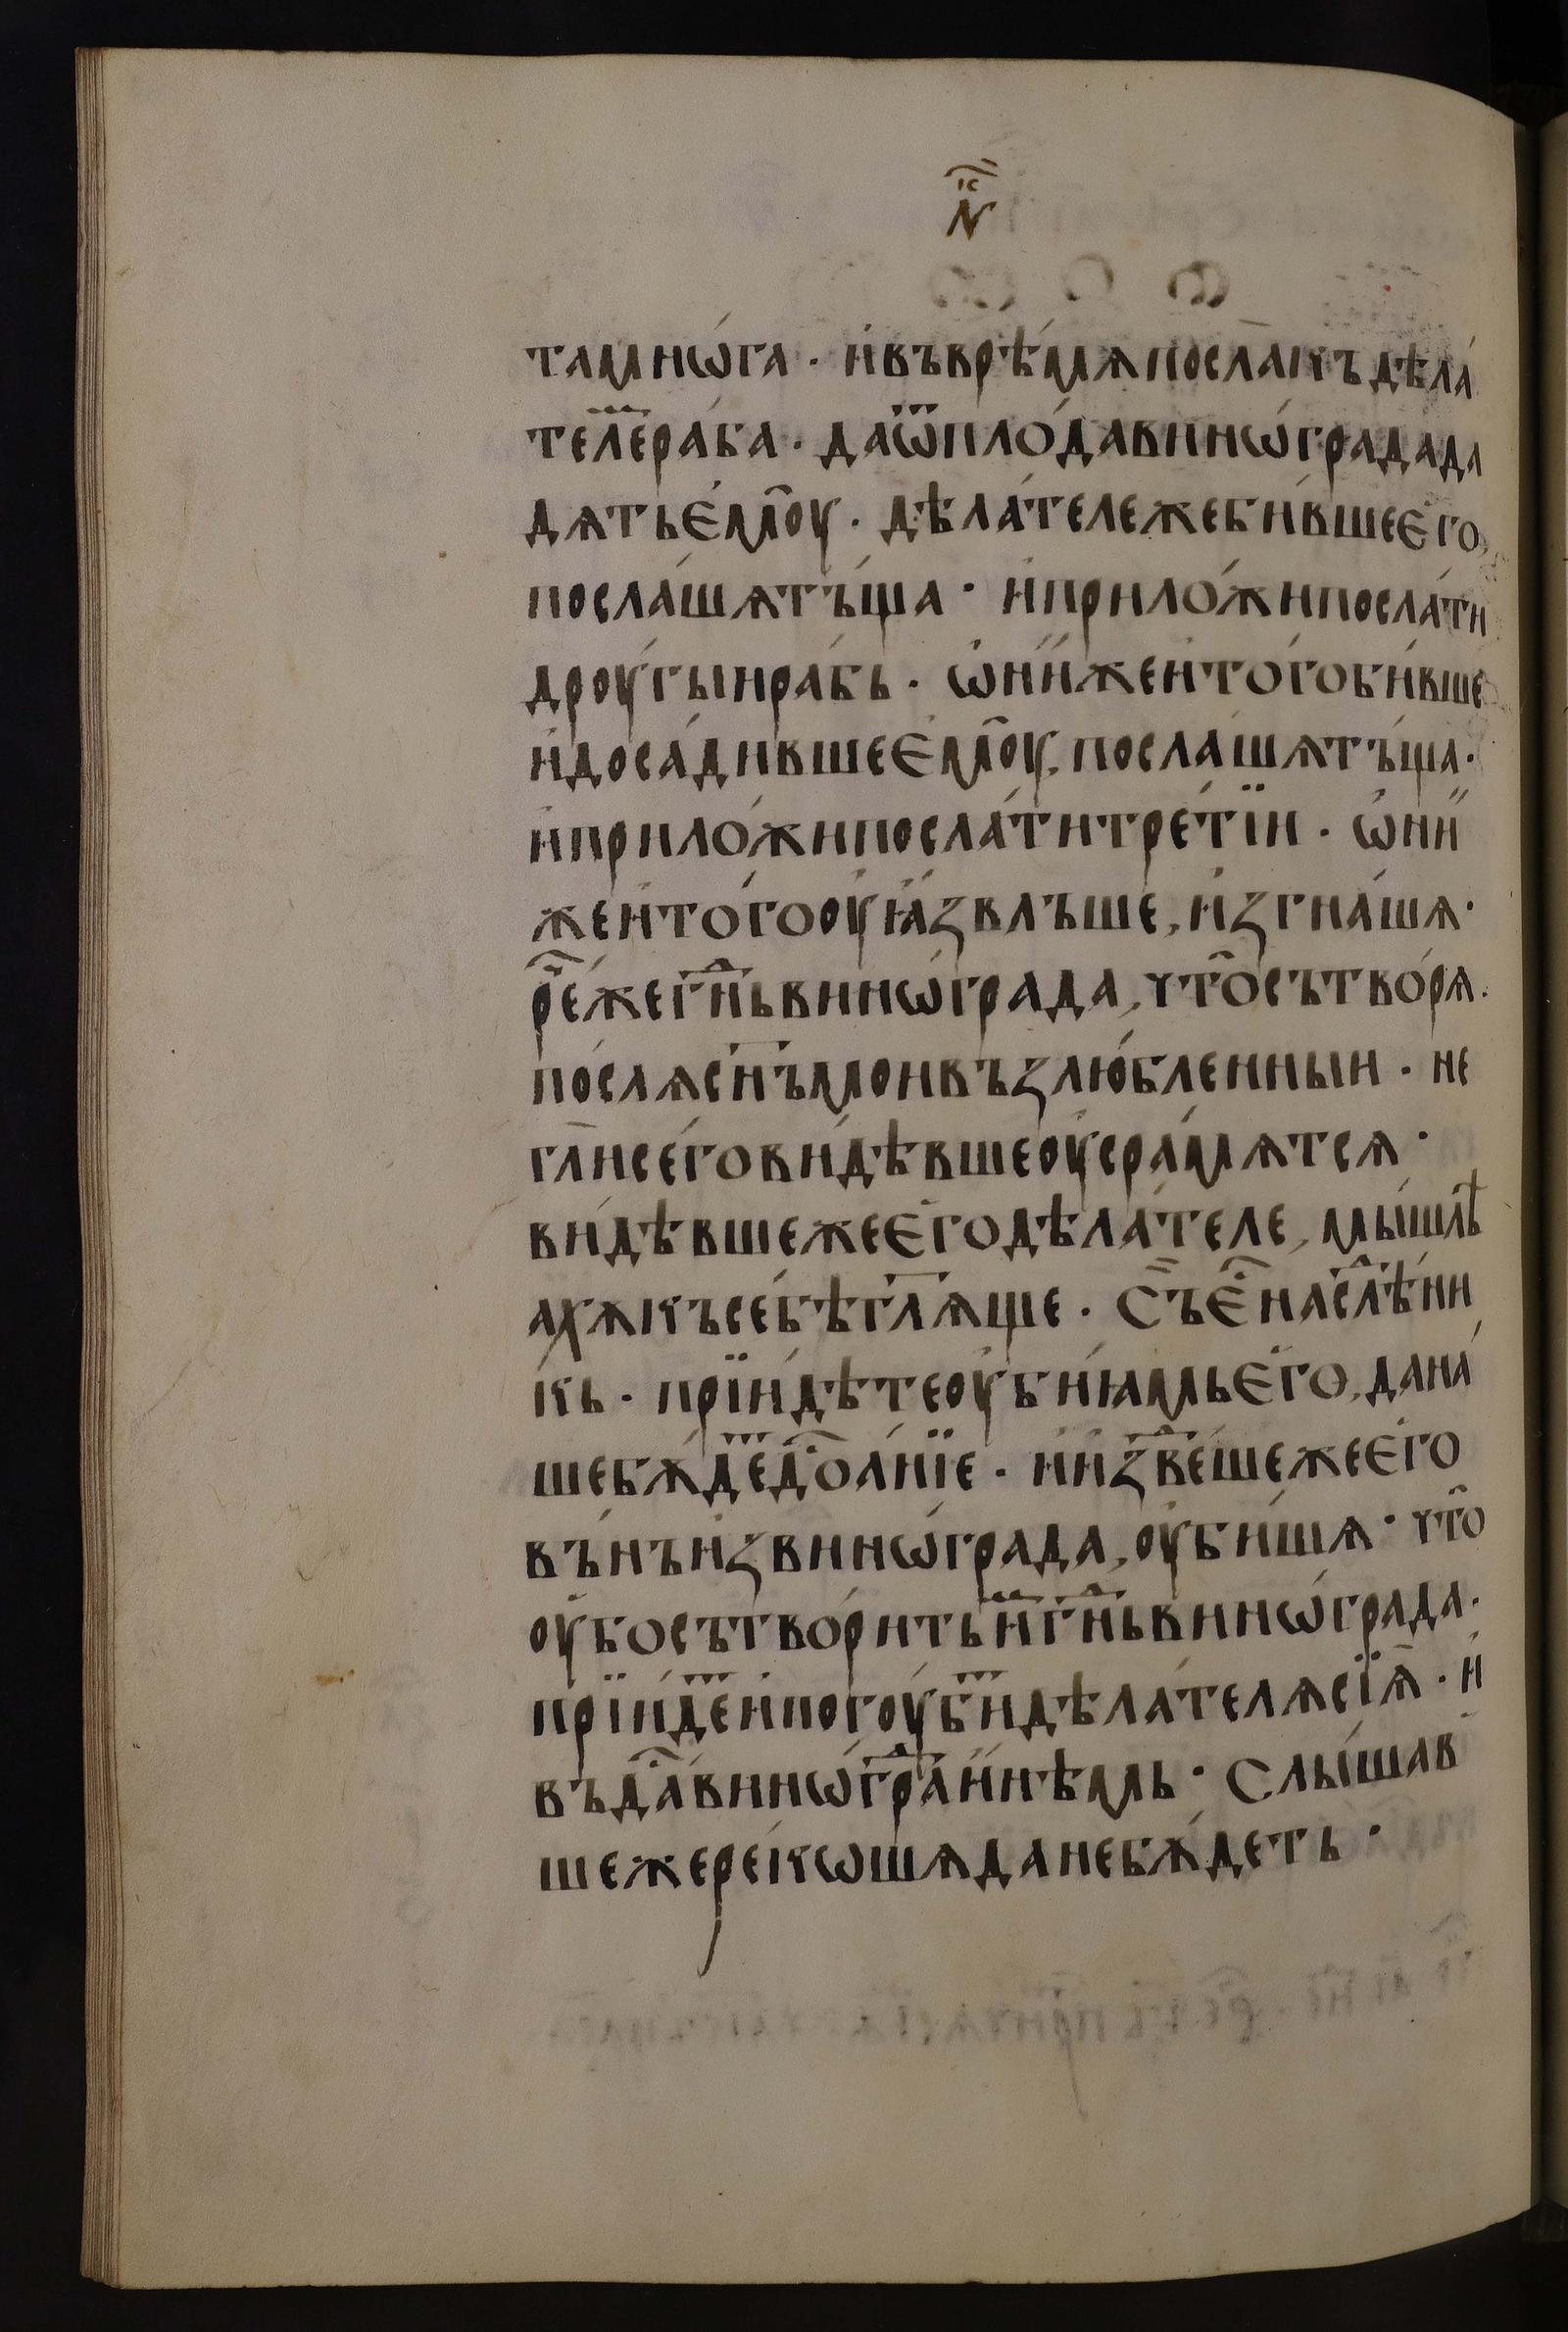 тамнѡ́га · и҆въврѣ́мѧпосла̀къдѣла́
теле҄рába · да҆ѿплѡ́давинѡ́градада
дѧтье҆моу̑ · дѣла́тележеби́вшеего̀,
посла́шѫтъ́ща · и҆прило́жипосла́ти
дроу́гыираб́ь · ѡ҆ни́жеи҆того́би́вше
и҆доса́дившеемоу̑, посла́шѫтъ́ща ·
и҆прило́жипосла́титре́тїи · ѡ҆ни́
жеи҆того́оу҆ꙗ҆́звльше, и҆згна́шѧ ·
ре́жегн҃ьвинѡ́града, что̑сътво́рѧ ·
по́слѧсн҃ъмоивъзлю́бленныи · не
гл҃исего́ви́дѣвшеоу҆сра́мѧтсѧ ·
ви́дѣвшежеего̀дѣла́теле, мы́шлѣ
ахѫкъсебѣ́гл҃ѫще · Съе҆̑наслѣ́ни
кь · прїи́дѣтеоу҆би́ꙗмьего̀, дана́
шебѫ́деⷮдоⷭ҇а́нїе · и҆и҆зве́шежеего̀
въ́нъи҆звинѡ́града, оу҆би́шѧ · что̑
оу҆босътво́ритьиⷨгн҃ьвинѡ́града ·
прїи́деⷮи҆погоу́биⷮдѣла́телѧсїѧ̀ · и҆
въда́ⷭвинѡ́граⷣи҆нѣ́мь · Слы́шав
шежереѝкѡшѧданебѫ́деть ·